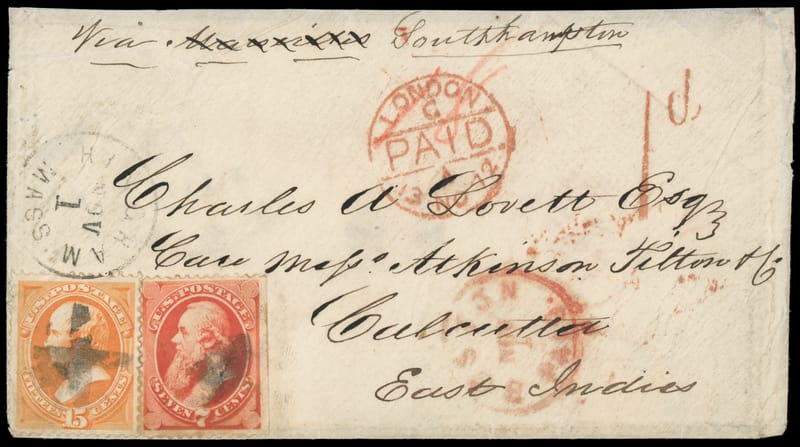 Via Marseilles Southhampton
LONDON
C
PAID
13 NO 72
1d.
HINGHAM
NOV
1
MASS.
Charles A Lovett Esqr
Care Messs. Atkinson Tilton & Co
Calcutta
East Indies
U.S. POSTAGE
FIFTEEN 15 CENTS
U.S. POSTAGE
SEVEN 7 CENTS